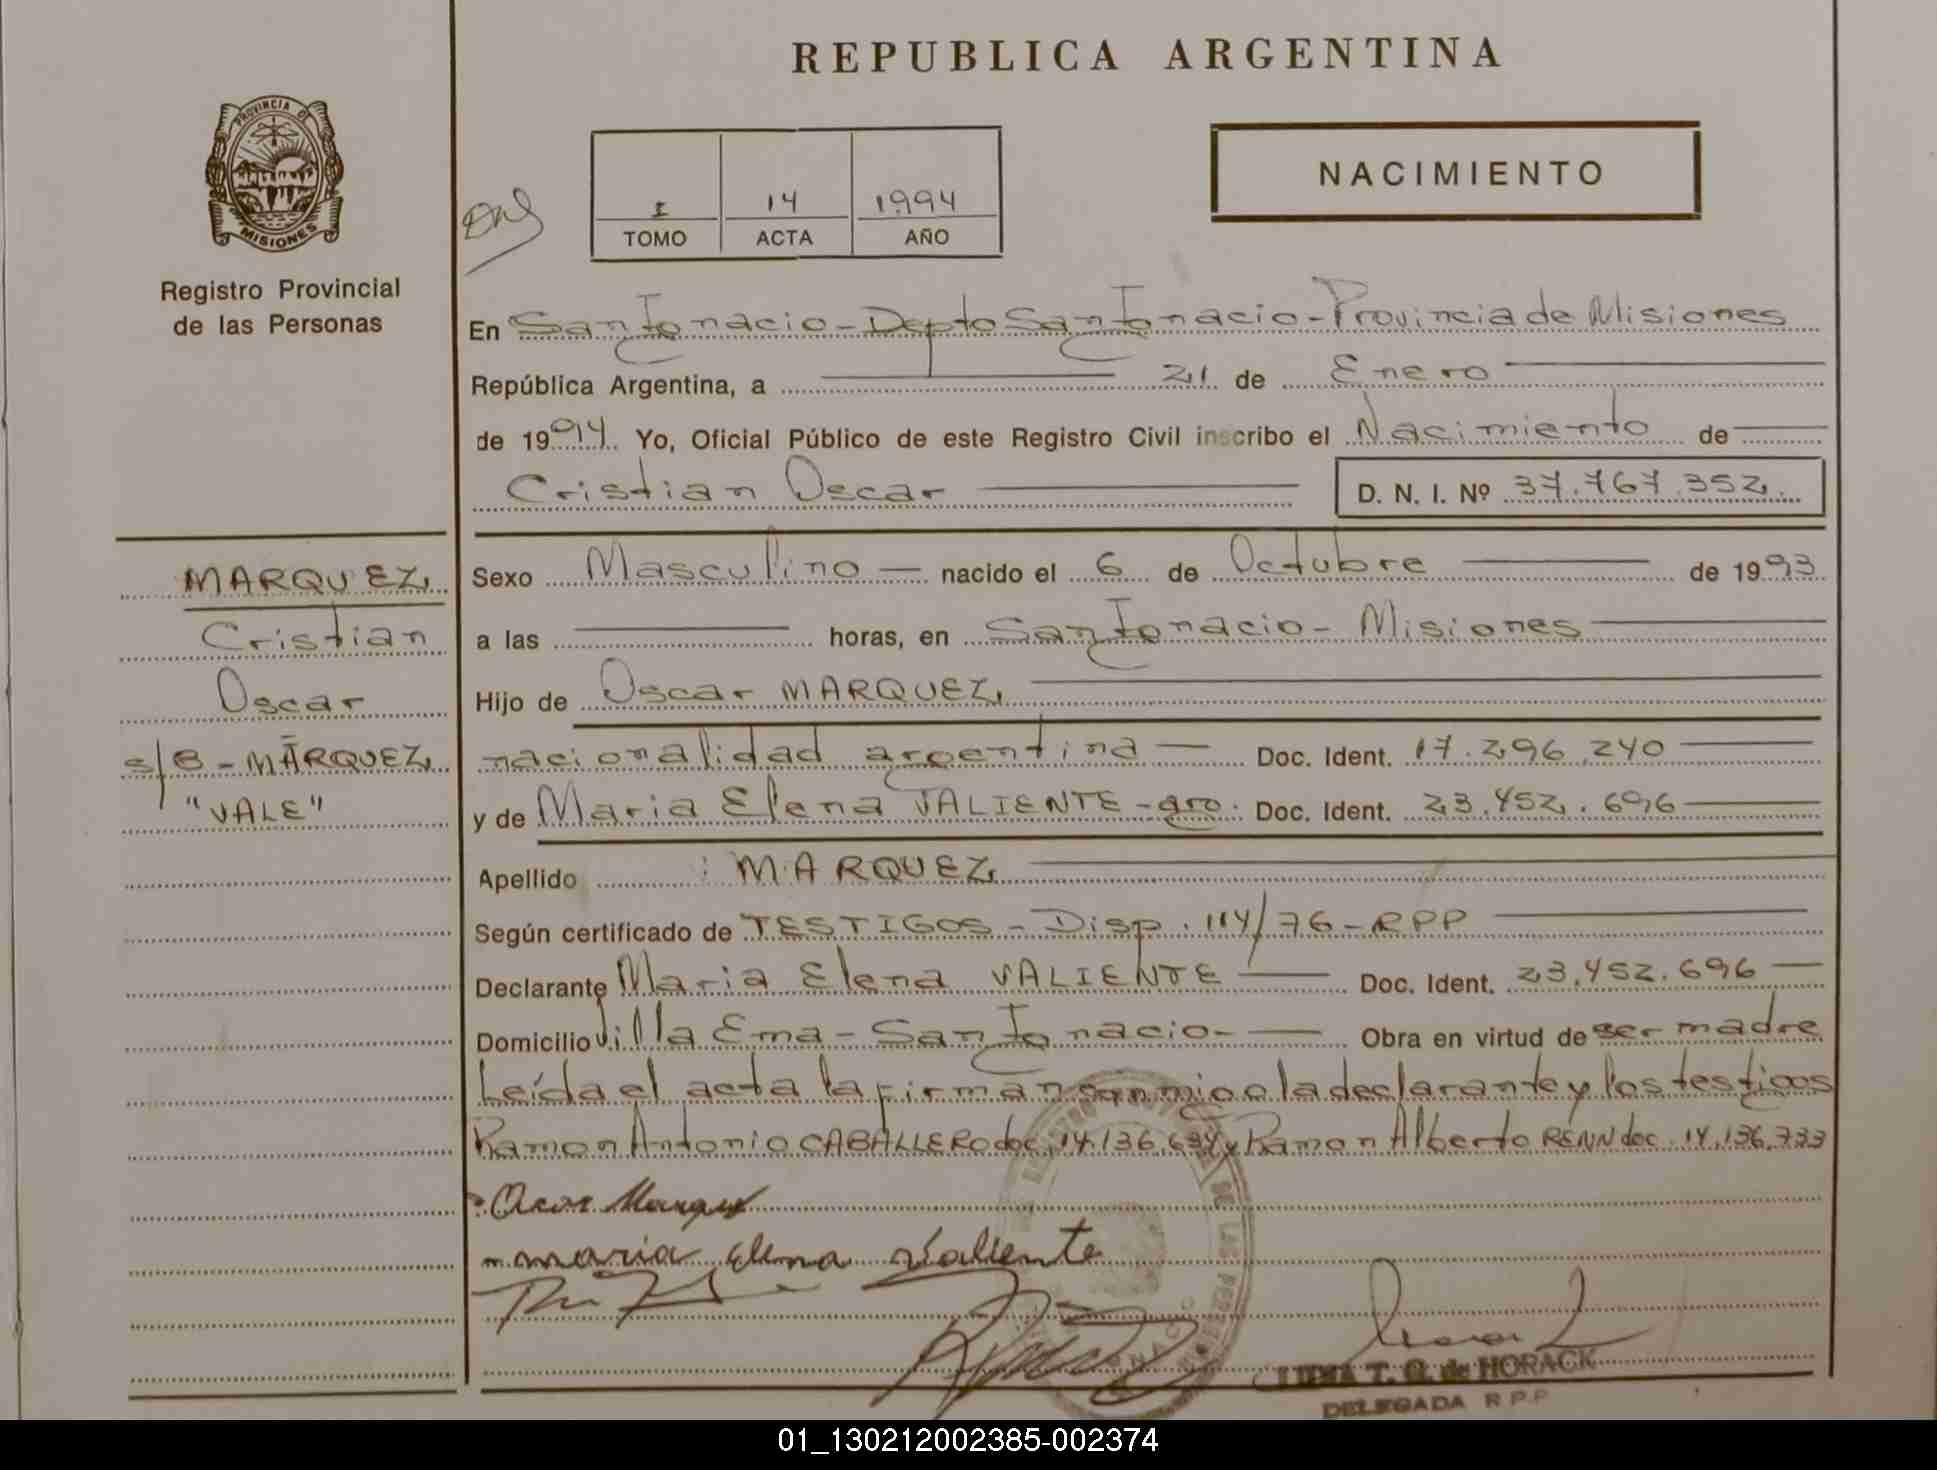 REPUBLICA ARGENTINA
PROVINCIA DE
MISIONES
Registro Provincial
de las Personas
I 14 1994
TOMO ACTA AÑO
NACIMIENTO
En San Ignacio - Depto San Ignacio - Provincia de Misiones
República Argentina, a 21 de Enero
de 1994 Yo, Oficial Público de este Registro Civil inscribo el Nacimiento de
Cristian Oscar D. N. I. Nº 37.767.352
MARQUEZ
Cristian
Oscar
s/B - MARQUEZ
"VALE"
Sexo Masculino nacido el 6 de Octubre de 1993
a las horas, en San Ignacio - Misiones
Hijo de Oscar MARQUEZ
nacionalidad argentina Doc. Ident. 17.296.240
y de Maria Elena VALIENTE - arg. Doc. Ident. 23.452.696
Apellido : MARQUEZ
Según certificado de TESTIGOS - Disp. 114/76 - RPP
Declarante Maria Elena VALIENTE Doc. Ident. 23.452.696
Domicilio Villa Ema - San Ignacio - Obra en virtud de ser madre
Leída el acta la firman conmigo la declarante y los testigos
Ramon Antonio CABALLERO doc. 14.136.634 y Ramon Alberto RENN doc. 14.136.733
Oscar Marquez
maria Elena Valiente
T. G. de HORACK
DELEGADA R P P
01_130212002385-002374